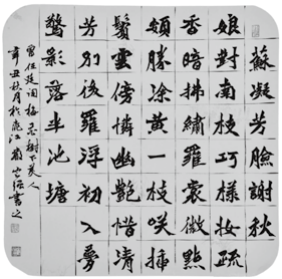 蘇凝芳臉謝秋
娘對南枝巧樣妝疏
香暗拂繡羅裳微點
額勝塗黃一枝咲插
鬢雲傍憐幽艷惜清
芳別後羅浮初入夢
驚影落半池塘
曾廷詞梅樹下美人
辛丑秋月於江書之